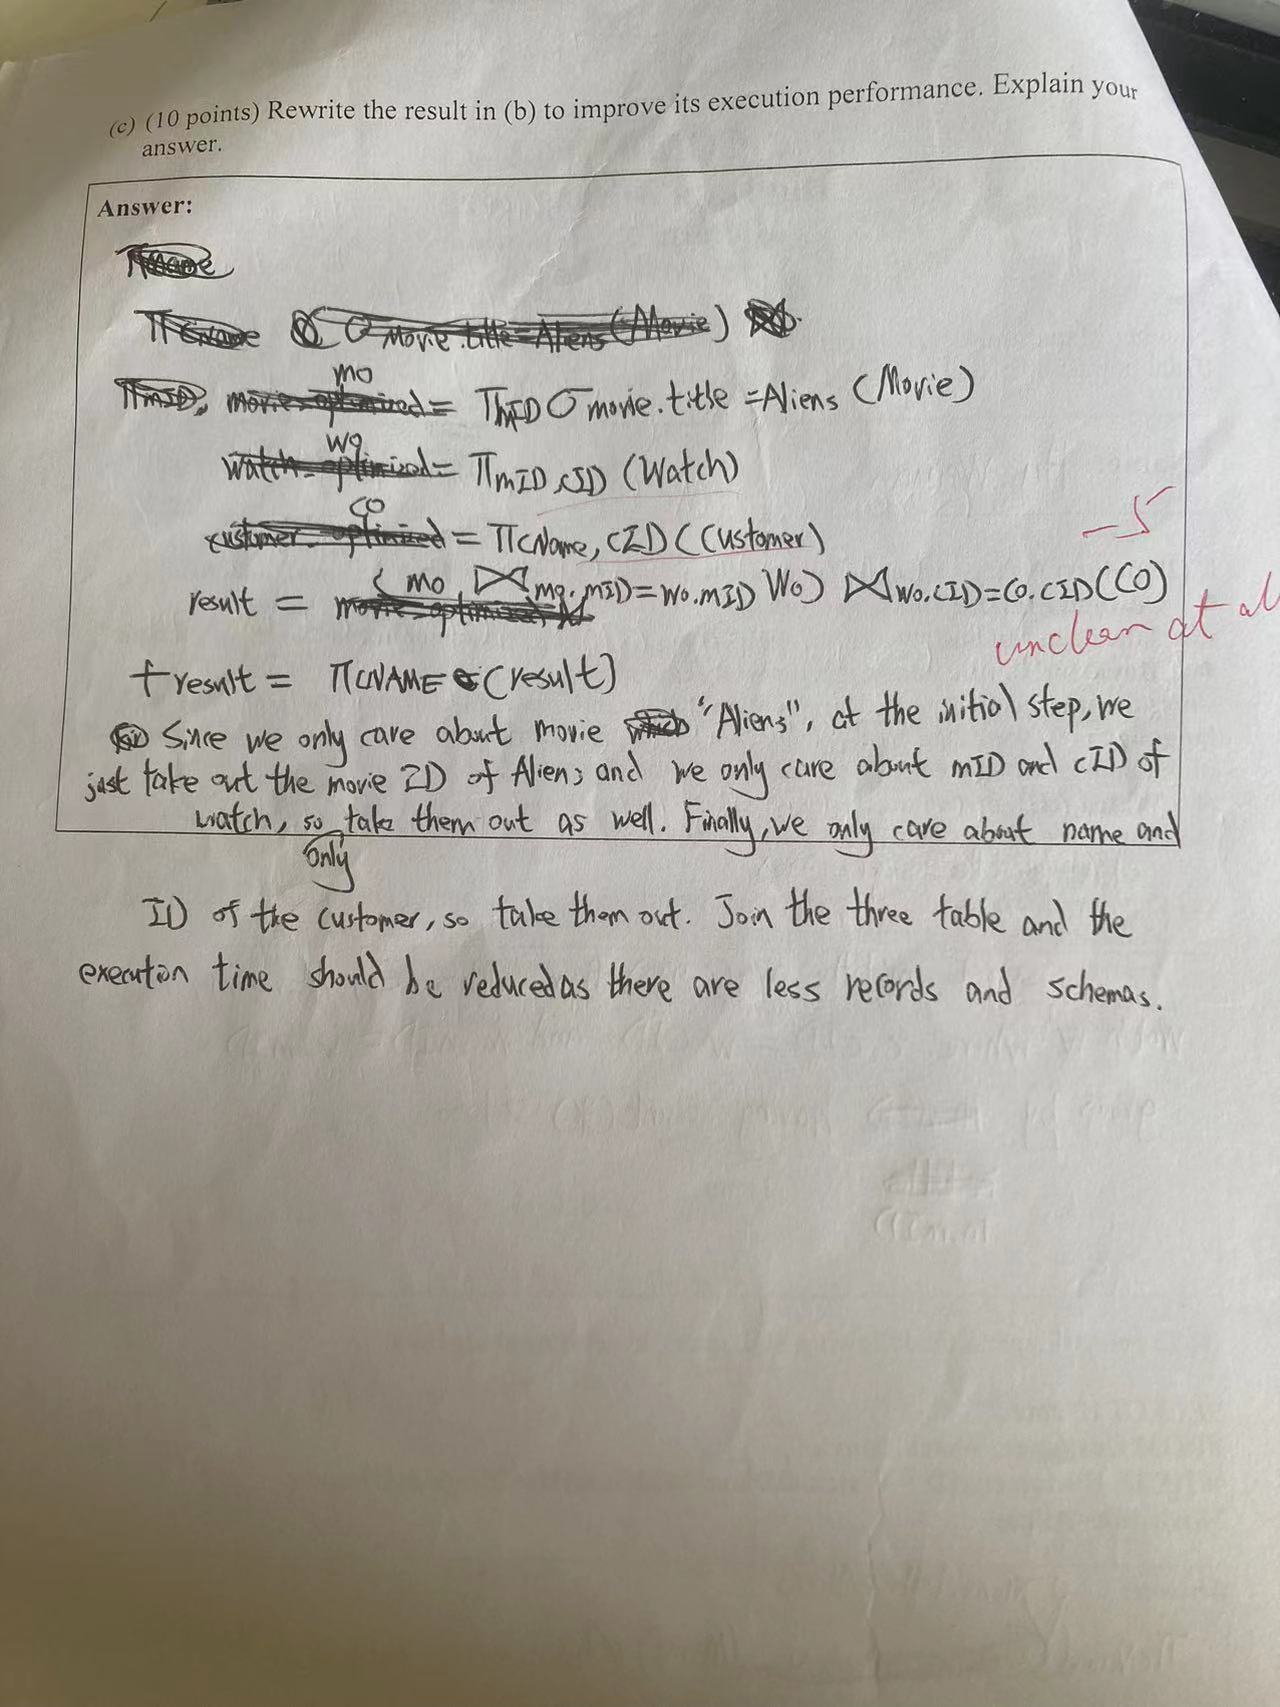 (c) (10 points) Rewrite the result in (b) to improve its execution performance. Explain your
answer.
Answer:
σ Movie.title=Aliens (Movie)
mo
= πmID σ movie.title =Aliens (Movie)
wo
watch-optimized = πmID,cID (Watch)
co
customer-optimized = πcName, cID (Customer)
-5
result = (mo ⋈ mo.mID=wo.mID Wo) ⋈ wo.cID=Co.cID (CO)
unclear at al
result = πcNAME (result)
Since we only care about movie "Aliens", at the initial step, we
just take out the movie ID of Aliens and we only care about mID and cID of
watch, so take them out as well. Finally, we only care about name and
only
ID of the customer, so take them out. Join the three table and the
execution time should be reduced as there are less records and schemas.